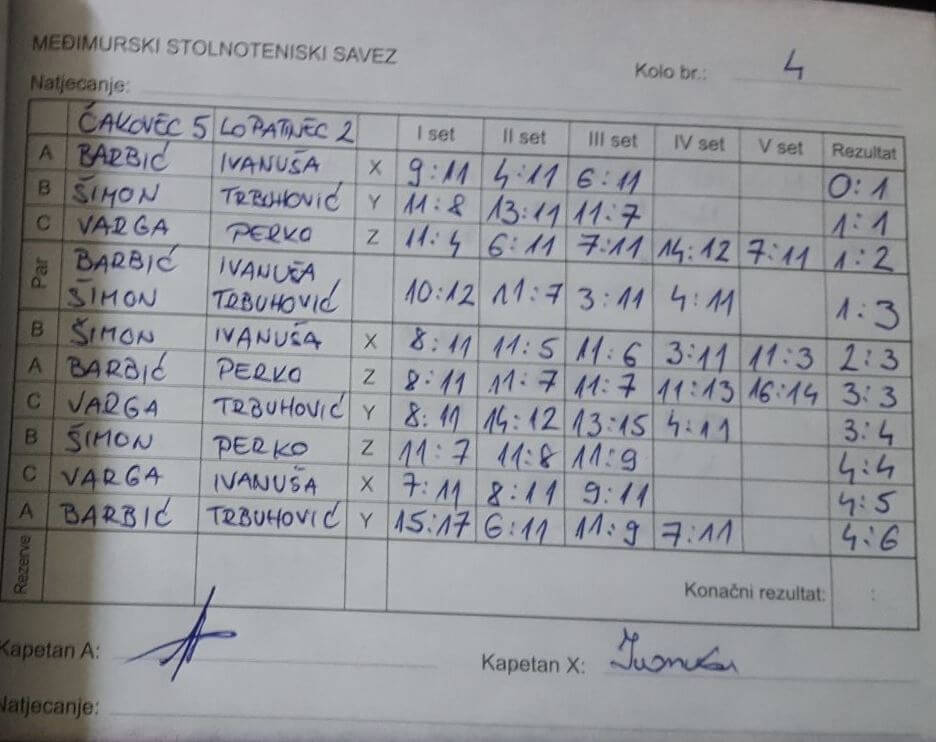 MEĐIMURSKI STOLNOTENISKI SAVEZ
Kolo br.: 4
Natjecanje:
ČAKOVEC 5 LOPATINEC 2 I set II set III set IV set V set Rezultat
A BARBIĆ IVANUŠA X 9:11 4:11 6:11 0:1
B ŠIMON TRBUHOVIĆ Y 11:8 13:11 11:7 1:1
C VARGA PERKO Z 11:4 6:11 7:11 14:12 7:11 1:2
Par BARBIĆ IVANUŠA
ŠIMON TRBUHOVIĆ 10:12 11:7 3:11 4:11 1:3
B ŠIMON IVANUŠA X 8:11 11:5 11:6 3:11 11:3 2:3
A BARBIĆ PERKO Z 8:11 11:7 11:7 11:13 16:14 3:3
C VARGA TRBUHOVIĆ Y 8:11 14:12 13:15 4:11 3:4
B ŠIMON PERKO Z 11:7 11:8 11:9 4:4
C VARGA IVANUŠA X 7:11 8:11 9:11 4:5
A BARBIĆ TRBUHOVIĆ Y 15:17 6:11 11:9 7:11 4:6
Rezerve Konačni rezultat: :
Kapetan A:
Kapetan X:
Natjecanje: